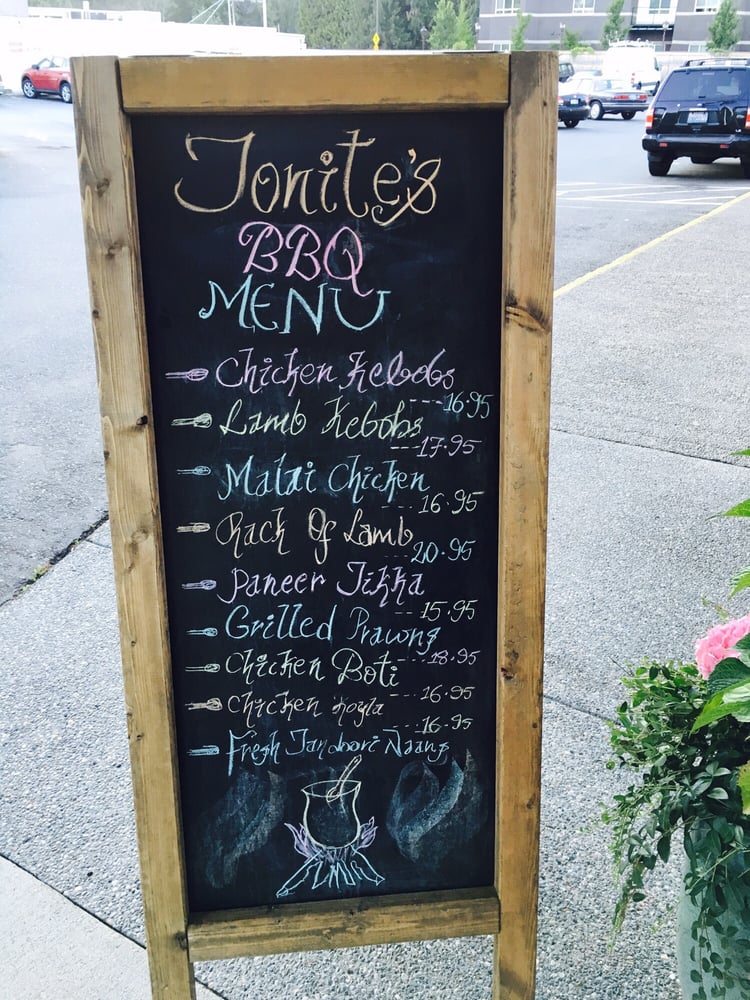 Tonite's
BBQ
MENU
Chicken Kebobs
---16.95
Lamb Kebobs
---17.95
Malai Chicken
16.95
Rack Of Lamb
---20.95
Paneer Tikka
--15.95
Grilled Prawns
---18.95
Chicken Boti
---16.95
Chicken Koyla
---16.95
Fresh Tandoori Naans